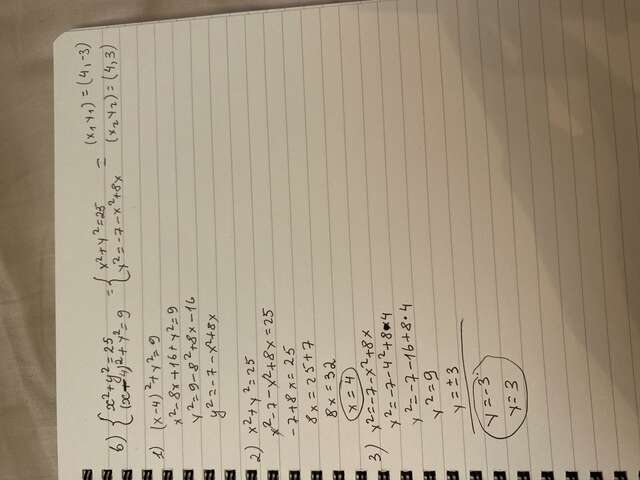 6) { x²+y²=25 = { x²+y²=25 = (x₁y₁)=(4,-3)
(x-4)²+y²=9 y²=-7-x²+8x (x₂y₂)=(4,3)
1) (x-4)²+y²=9
x²-8x+16+y²=9
y²=9-8²+8x-16
y²=-7-x²+8x
2) x²+y²=25
x²-7-x²+8x=25
-7+8x=25
8x=25+7
8x=32
x=4
3) y²=-7-x²+8x
y²=-7-4²+8•4
y²=-7-16+8•4
y²=9
y=±3
y=-3
y=3